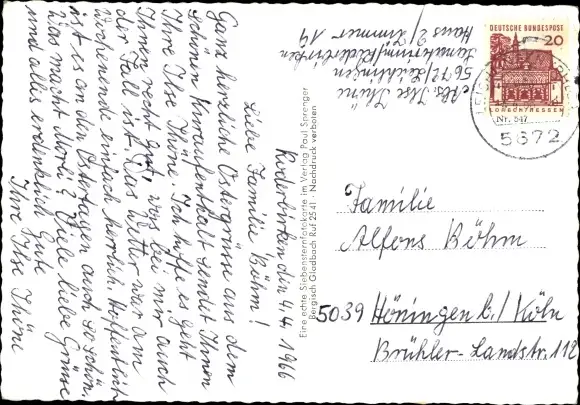 Roderbirken den 4.4.1966
Liebe Familie Böhm!
Ganz herzliche Ostergrüsse aus dem
schönen Krautenthalt sendet Ihnen
Ihre Ilse Thöne. Ich hoffe es geht
Ihnen recht gut, was bei mir auch
der Fall ist. Das Wetter war am
Wochenende einfach herrlich. Hoffentlich
ist es an den Ostertagen auch so schön.
Was macht Viele liebe Grüsse
und alles erdenklich Gute
Ihre Ilse Thöne
Abs. Ilse Thöne
5672/Leichlingen
Sanatorium/Roderbirken
Haus 2/Zimmer 14
Eine echte Siebensternfotokarte im Verlag Paul Sprenger
Bergisch Gladbach Ruf 2541 - Nachdruck verboten
DEUTSCHE BUNDESPOST
20
LORSCH/HESSEN
5672
Familie
Alfons Böhm
5039 Höningen b./Köln
Brühler-Landstr. 112